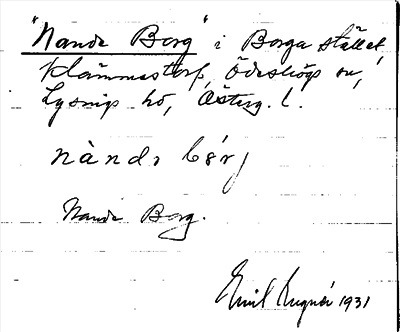 "Nande Borg" i Borga stället,
Klämmestorp, Ödeshögs sn,
Lysings hd, Österg. l.
nàndə bórj
Nande Borg.
Emil 1931